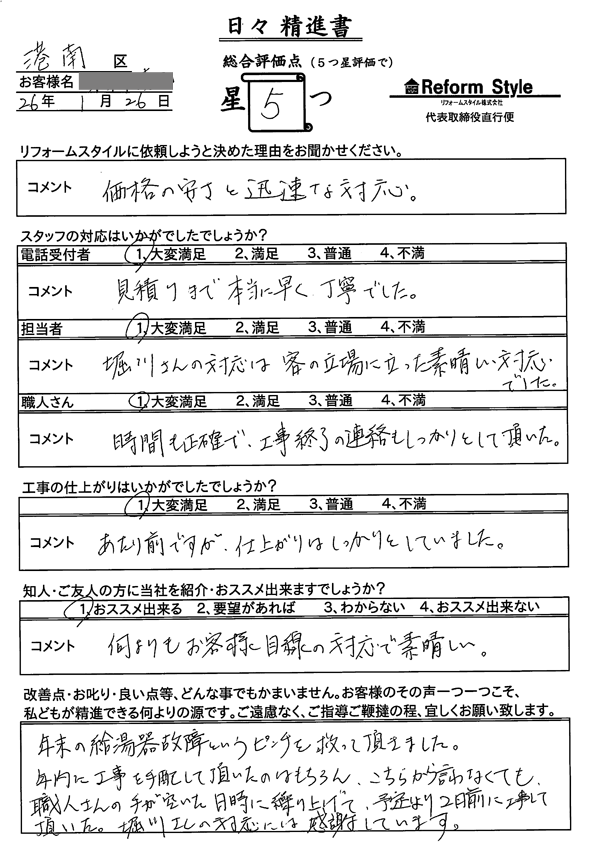 日々 精進書
港南 区
総合評価点(5つ星評価で)
お客様名
26年 1月 26日
星 5 つ
Reform Style
リフォームスタイル株式会社
代表取締役直行便
リフォームスタイルに依頼しようと決めた理由をお聞かせください。
コメント 価格の安さと迅速な対応。
スタッフの対応はいかがでしたでしょうか?
電話受付者 1、大変満足 2、満足 3、普通 4、不満
コメント 見積りまで本当に早く、丁寧でした。
担当者 1、大変満足 2、満足 3、普通 4、不満
コメント 堀川さんの対応は客の立場に立った素晴しい対応
でした。
職人さん 1、大変満足 2、満足 3、普通 4、不満
コメント 時間も正確で、工事終了の連絡もしっかりとして頂いた。
工事の仕上がりはいかがでしたでしょうか?
1、大変満足 2、満足 3、普通 4、不満
コメント あたり前ですが、仕上がりはしっかりとしていました。
知人・ご友人の方に当社を紹介・おススメ出来ますでしょうか?
1、おススメ出来る 2、要望があれば 3、わからない 4、おススメ出来ない
コメント 何よりもお客様目線の対応で素晴しい。
改善点・お叱り・良い点等、どんな事でもかまいません。お客様のその声一つ一つこそ、
私どもが精進できる何よりの源です。ご遠慮なく、ご指導ご鞭撻の程、宜しくお願い致します。
年末の給湯器故障というピンチを救って頂きました。
年内に工事を手配して頂いたのはもちろん、こちらから言わなくても、
職人さんの手が空いた日時に繰り上げて、予定より2日前に工事して
頂いた。堀川さんの対応には感謝しています。